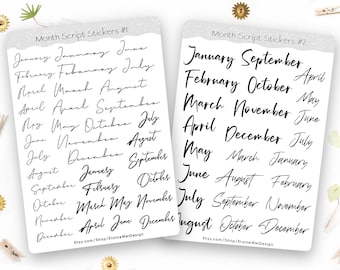 Month Script Stickers #1
January January January June
February February February July
April March March August
April April April September
May May May October July
June November August
July December September
August January October
September February
October March May November
November April June December
December
Month Script Stickers #2
January September April
February October May
March November June
April December July
May March January
June August February
July September November
August October December
Etsy.com/Shop/